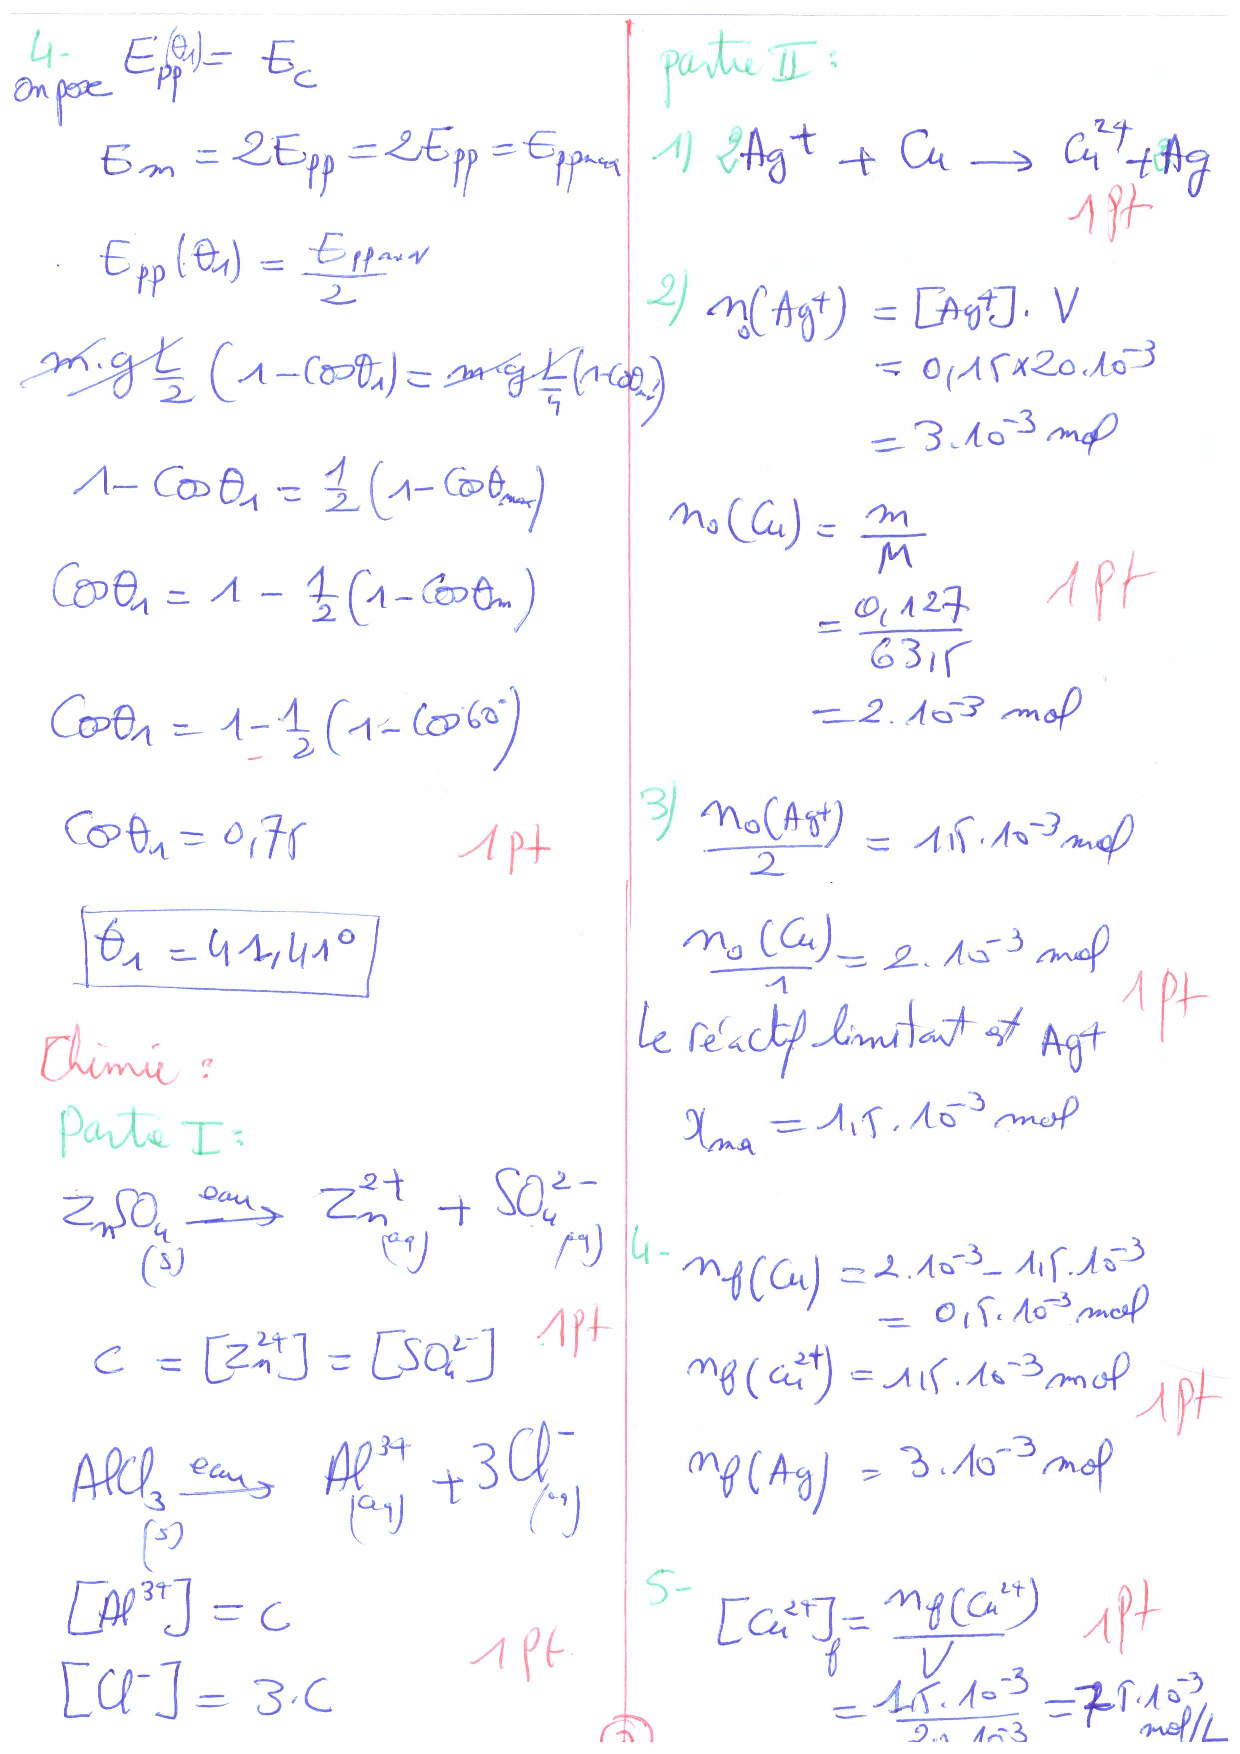 4-
On pose Epp(θ1) = Ec
Em = 2Epp = 2Epp = Eppmax
Epp(θ1) = Eppmax/2
m.g L/2 (1-Cosθ1) = m.g L/4 (1-Cosθm)
1-Cosθ1 = 1/2 (1-Cosθmax)
Cosθ1 = 1 - 1/2 (1-Cosθm)
Cosθ1 = 1-1/2 (1-Cos60°)
Cosθ1 = 0,75
1pt
θ1 = 41,41°
Chimie :
Partie I :
ZnSO4(s) eau→ Zn2+(aq) + SO42-(aq)
C = [Zn2+] = [SO42-]
1pt
AlCl3(s) eau→ Al3+(aq) + 3Cl-(aq)
[Al3+] = C
[Cl-] = 3.C
1pt
partie II :
1) 2Ag+ + Cu → Cu2+ + 2Ag
1pt
2) n0(Ag+) = [Ag+]. V
= 0,15x20.10-3
= 3.10-3 mol
n0(Cu) = m/M
= 0,127/63,5
1pt
= 2.10-3 mol
3) n0(Ag+)/2 = 1,5.10-3 mol
n0(Cu)/1 = 2.10-3 mol
1pt
Le réactif limitant est Ag+
xma = 1,5.10-3 mol
4- nf(Cu) = 2.10-3 - 1,5.10-3
= 0,5.10-3 mol
nf(Cu2+) = 1,5.10-3 mol
1pt
nf(Ag) = 3.10-3 mol
5- [Cu2+]f = nf(Cu2+)/V
1pt
= 1,5.10-3/20.10-3 = 75.10-3 mol/L